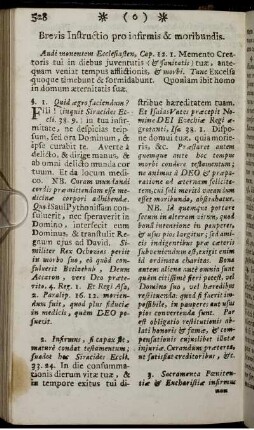 528 * (6) *
Brevis Instructio pro infirmis & moribundis.
Audi monentem Ecclesiasten, Cap. 12. 1. Memento Crea-
toris tui in diebus juventutis (& sanitatis) tuæ, ante-
quam veniat tempus afflictionis, & morbi. Tunc Excelsa
quoque timebunt & formidabunt. Quoniam ibit homo
in domum æternitatis suæ.
§. 1. Quid ægro faciendum?
Fili! inquit Siracides Ec-
cli. 38. 9. in tua infir-
mitate, ne despicias teip-
sum, sed ora Dominum, &
ipse curabit te. Averte à
delicto, & dirige manus, &
ab omni delicto munda cor
tuum. Et da locum medi-
co. NB. Coram mundandi
cordis præmittendam esse me-
dicinæ corpori adhibendæ.
Quia Saul Pythonissam con-
suluerit, nec speraverit in
Domino, interfecit eum
Dominus, & transtulit Re-
gnum ejus ad David. Si-
militer Rex Ochozias periit
in morbo suo, eò quòd con-
suluerit Beelzebub, Deum
Accaron, vero Deo præte-
rito, 4. Reg. 1. Et Regi Asa,
2. Paralip. 16. 12. morien-
dum fuit, quòd plus fiduciæ
in medicis, quàm DEO po-
suerit.
2. Infirmus, si capax sit,
maturè condat testamentum;
suadet hoc Siracides Eccli.
33. 24. In die consumma-
tionis dierum vitæ tuæ, &
in tempore exitus tui di-
stribue hæreditatem tuam.
Et Isaias Vates præcepit No-
mine DEI Ezechiæ Regi æ-
grotanti, Isa 38. 1. Dispo-
ne domui tuæ, quia morie-
ris, &c. Præstaret autem
quemque ante hoc tempus
morbi condere testamentum;
ne animus à DEO & præpa-
ratione ad æternam felicita-
tem, vel soli mœsti uxorium
esse moribundo, abstrahatur.
NB. Id quamque portare
secum in alterum vitam, quod
bonâ intentione in pauperes
& usus pios largitur; sed ami-
cis indigentibus præ cæteris
subveniendum est, exigit enim
id ordinata charitas. Bona
autem aliena aut omnia sunt
quàm citissimè fieri potest, vel
Domino suo, vel hæredibus
restituenda: quod si fuerit im-
possibile, in pauperes aut usus
pios convertenda sunt. Par
est obligatio restitutionis ab-
lati honoris & famæ, & com-
pensationis cujuslibet illatæ
injuriæ. Curandum præterea,
ut satisfiat creditoribus, &c.
3. Sacramenta Pœniten-
tiæ & Eucharistiæ infirmus
non